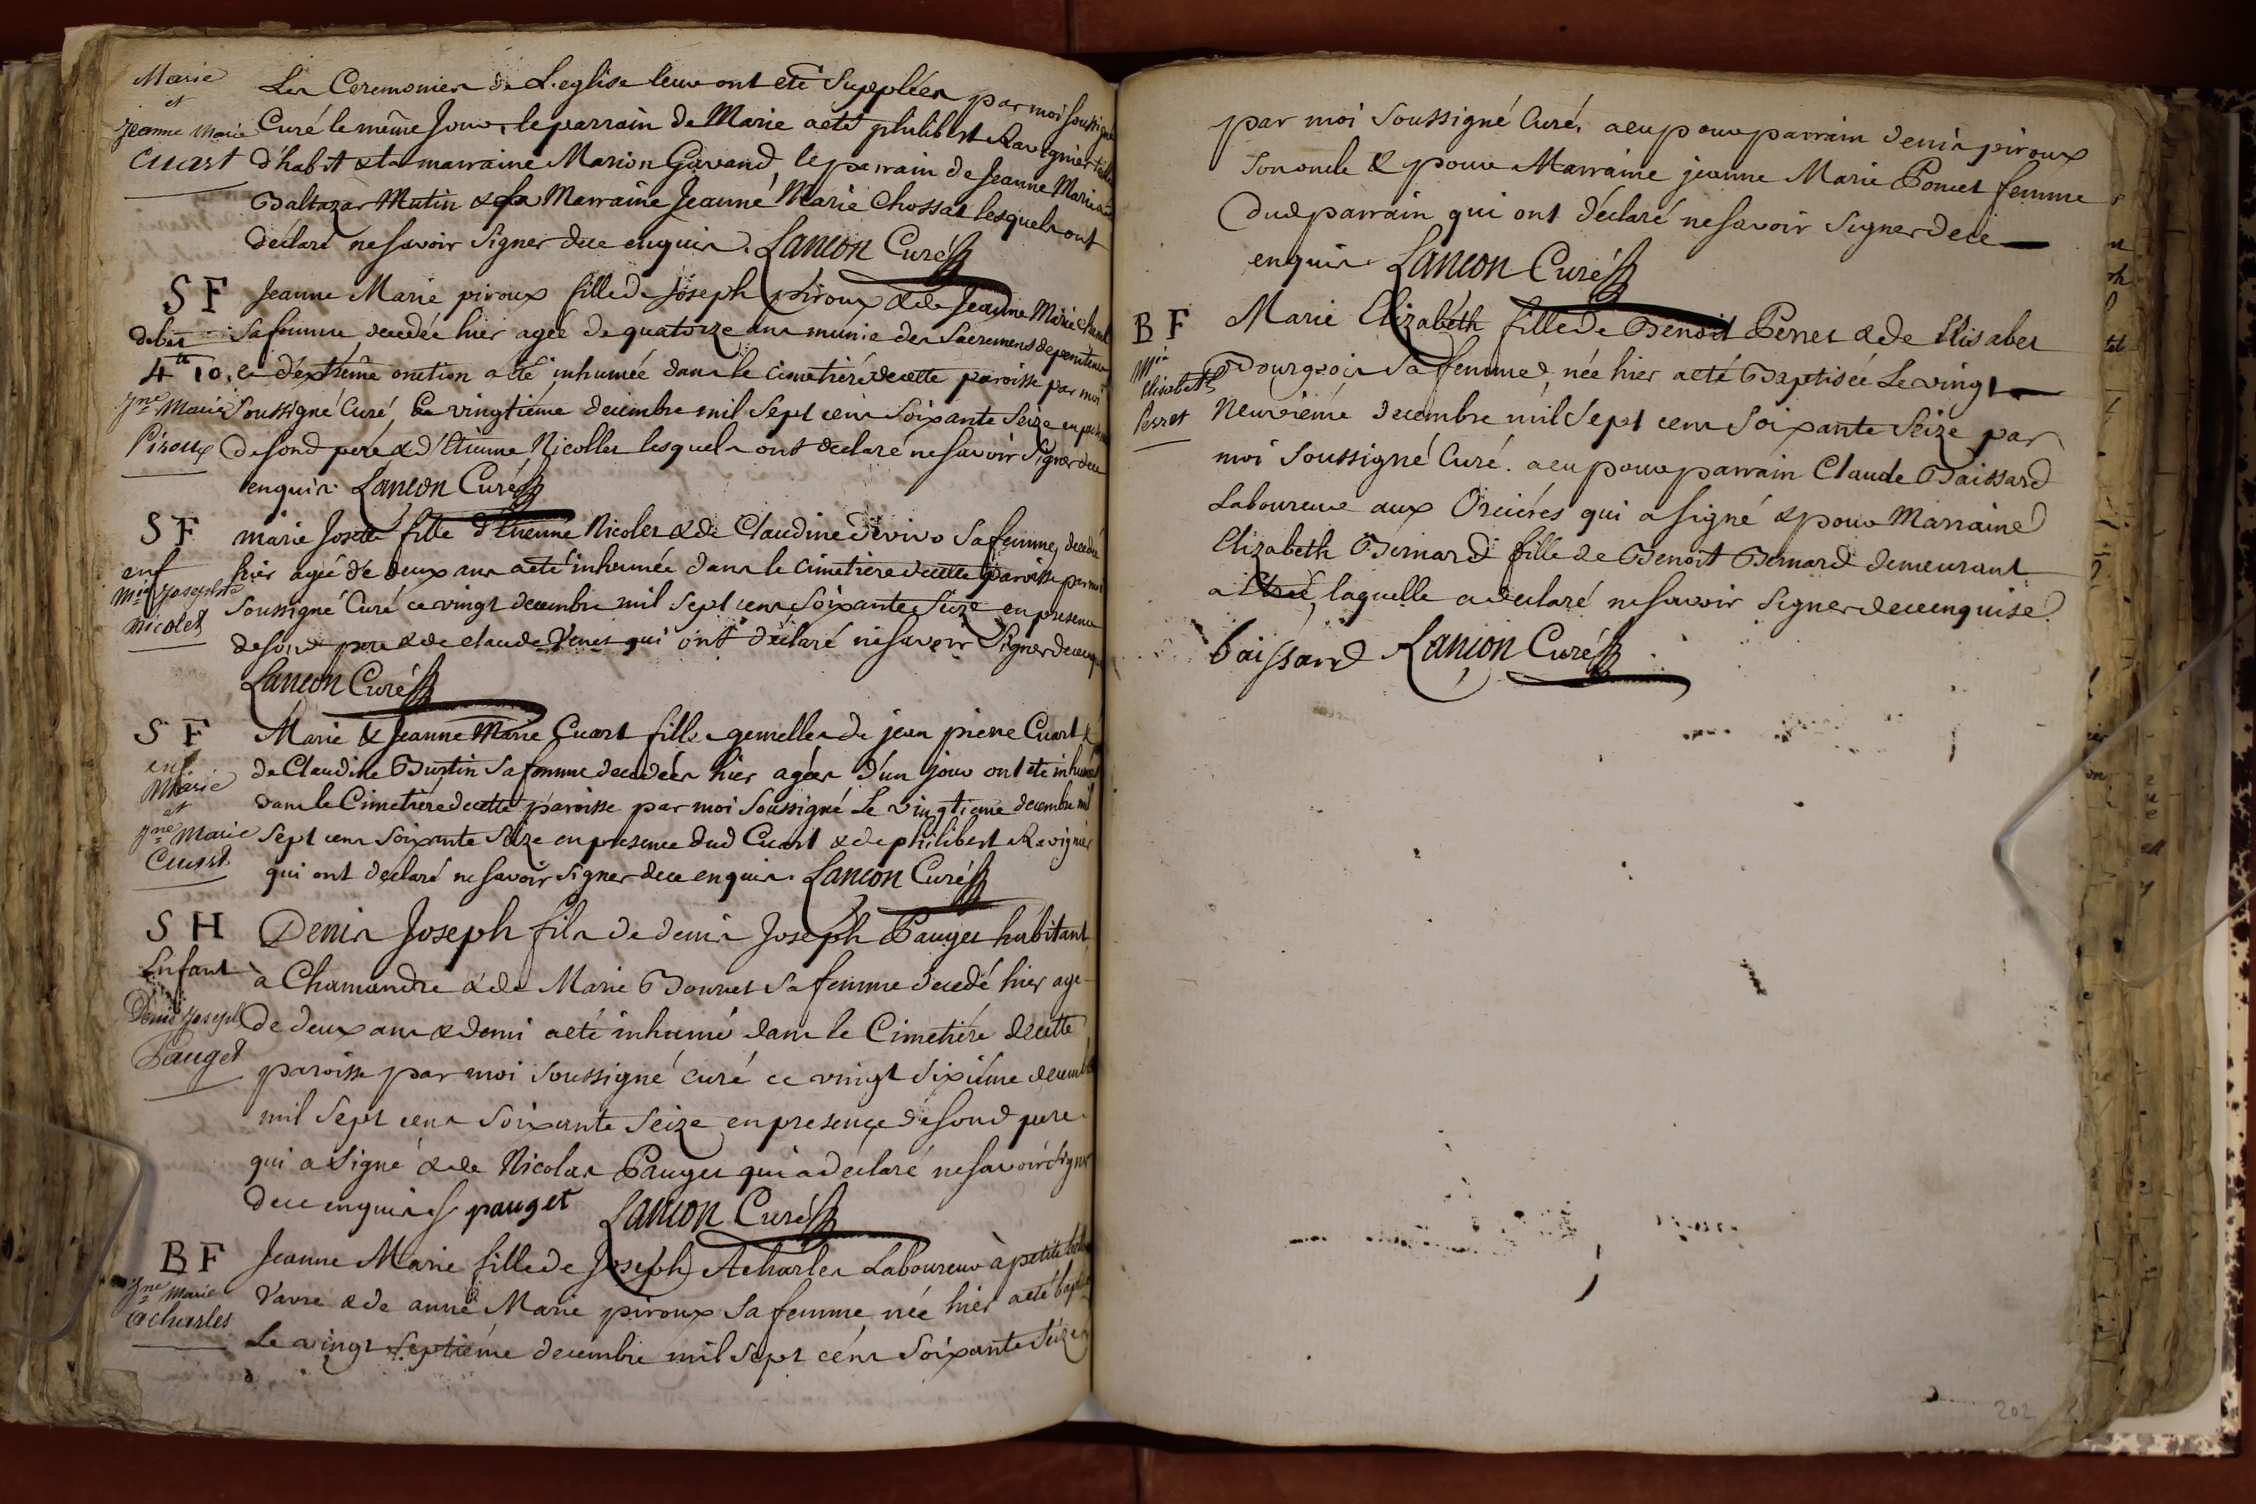 Marie
et
Jeanne Marie
Cuart
Les Ceremonies de L'eglise leur ont eté Suppléés par moi soussigné
Curé le même Jour, le parrain de Marie a eté philibert Ravignier
d'habit & la marraine Marion Gavand, le parrain de Jeanne Marie
Baltazar Mutin & sa Marraine Jeanne Marie Chossat lesquels ont
déclaré ne savoir signer de ce enquis. Lancon Curé
S F
4tt 10s
Jne Marie
Piroux
Jeanne Marie piroux fille de Joseph piroux & de Jeanne Marie
sa femme decedée hier agée de quatorze ans munie des Sacremens de penitence
& d'extrême onction a eté inhumée dans le cimetiére de cette paroisse par moi
soussigné Curé, Ce vingtiéme decembre mil Sept cens Soixante Seize en presence
de sond pere & d'Etienne Nicollet lesquels ont declaré ne savoir signer de ce
enquis. Lancon Curé
S F
enf
Mie Josephte
Nicolet
marie Josette fille d'Etienne Nicolet & de Claudine Devivo sa femme, decedée
hier agée de deux ans a eté inhumée dans le cimetiere de cette paroisse par moi
soussigné Curé ce vingt decembre mil Sept cens Soixante Seize en presence
de sond pere & de claude Venet qui ont déclaré ne savoir signer de ce enquis
Lancon Curé
S F
enf
Marie
et
Jne Marie
Cuart
Marie & Jeanne Marie Cuart filles gemelles de jean pierre Cuart &
de Claudine Burtin sa femme decedées hier agées d'un jour ont eté inhumées
dans le Cimetiére de cette paroisse par moi soussigné Le vingtieme decembre mil
Sept cens soixante Seize en presence dud Cuart & de philibert Ravignier
qui ont declaré ne savoir signer de ce enquis. Lancon Curé
S H
Enfant
Denis Joseph
Pauget
Denis Joseph fils de denis Joseph Pauget habitant
a Chamandre & de Marie Bonnet sa femme decedé hier agé
de deux ans & demi a eté inhumé dans le Cimetiére de cette
paroisse par moi soussigné curé ce vingt sixiéme decembre
mil Sept cens soixante Seize en presence de sond pere
qui a signé & de Nicolas Pauget qui a déclaré ne savoir signer
de ce enquis pauget Lancon Curé
B F
Jne Marie
acharles
Jeanne Marie fille de Joseph Acharles Laboureur à petite
Vavre & de anne Marie piroux sa femme, née hier a eté
Le vingt septiéme decembre mil sept cens Soixante Seize
par moi Soussigné Curé, a eu pour parrain denis piroux
son oncle & pour Marraine jeanne Marie Poncet femme
dud parrain qui ont déclaré ne savoir signer de ce
enquis. Lancon Curé
B F
Mie
Elisabeth
Perret
Marie Elizabéth fille de Benoit Perret & de Elisabet
Bourgeois sa femme, née hier a eté Baptisée Le vingt
Neuviéme decembre mil Sept cens Soixante Seize par
moi soussigné Curé. a eu pour parrain Claude Baissard
Laboureur aux Orciéres qui a signé & pour Marraine
Elizabeth Bernard fille de Benoit Bernard demeurant
a laquelle a declaré ne savoir signer de ce enquise.
baissard Lancon Curé
202